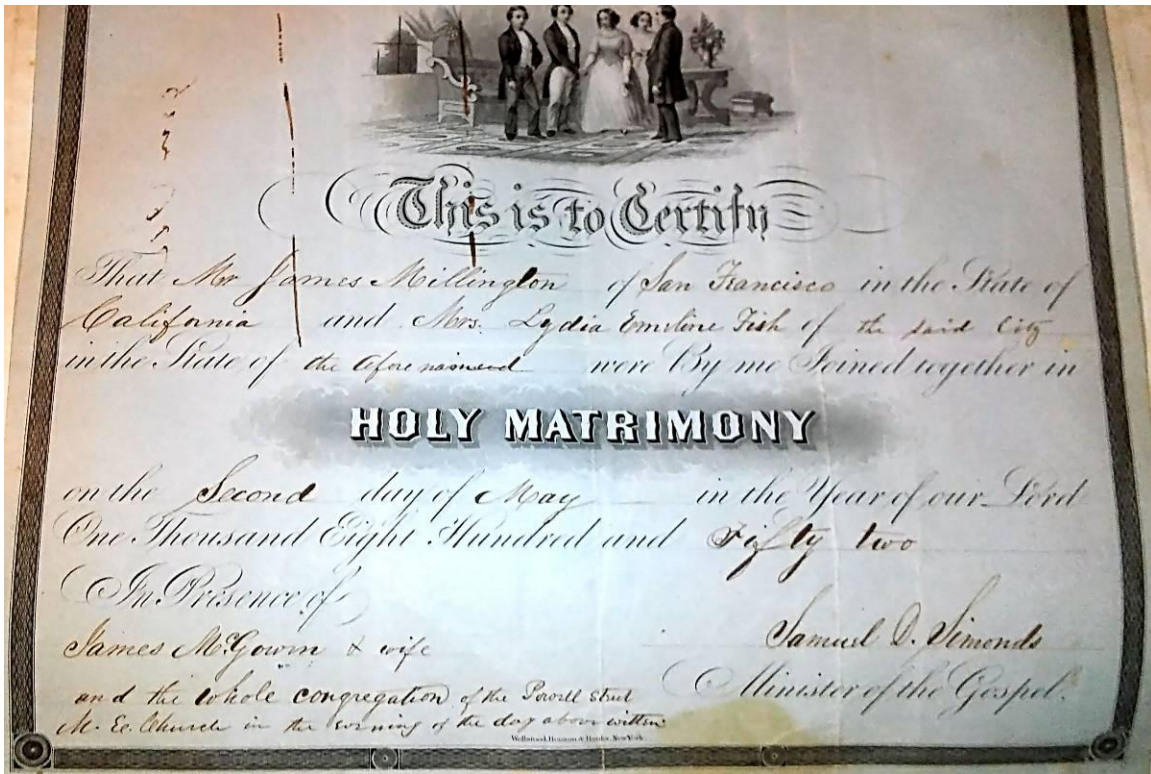 This is to Certify
That Mr James Millington of San Francisco in the State of
California and Mrs. Lydia Emiline Fish of the said City
in the State of the afore named were By me Joined together in
HOLY MATRIMONY
on the Second day of May in the Year of our Lord
One Thousand Eight Hundred and Fifty two
In Presence of
James McGowin & wife
Samuel D. Simonds
Minister of the Gospel.
and the whole congregation of the Powell Street
M. E. Church in the evening of the day above written
New York